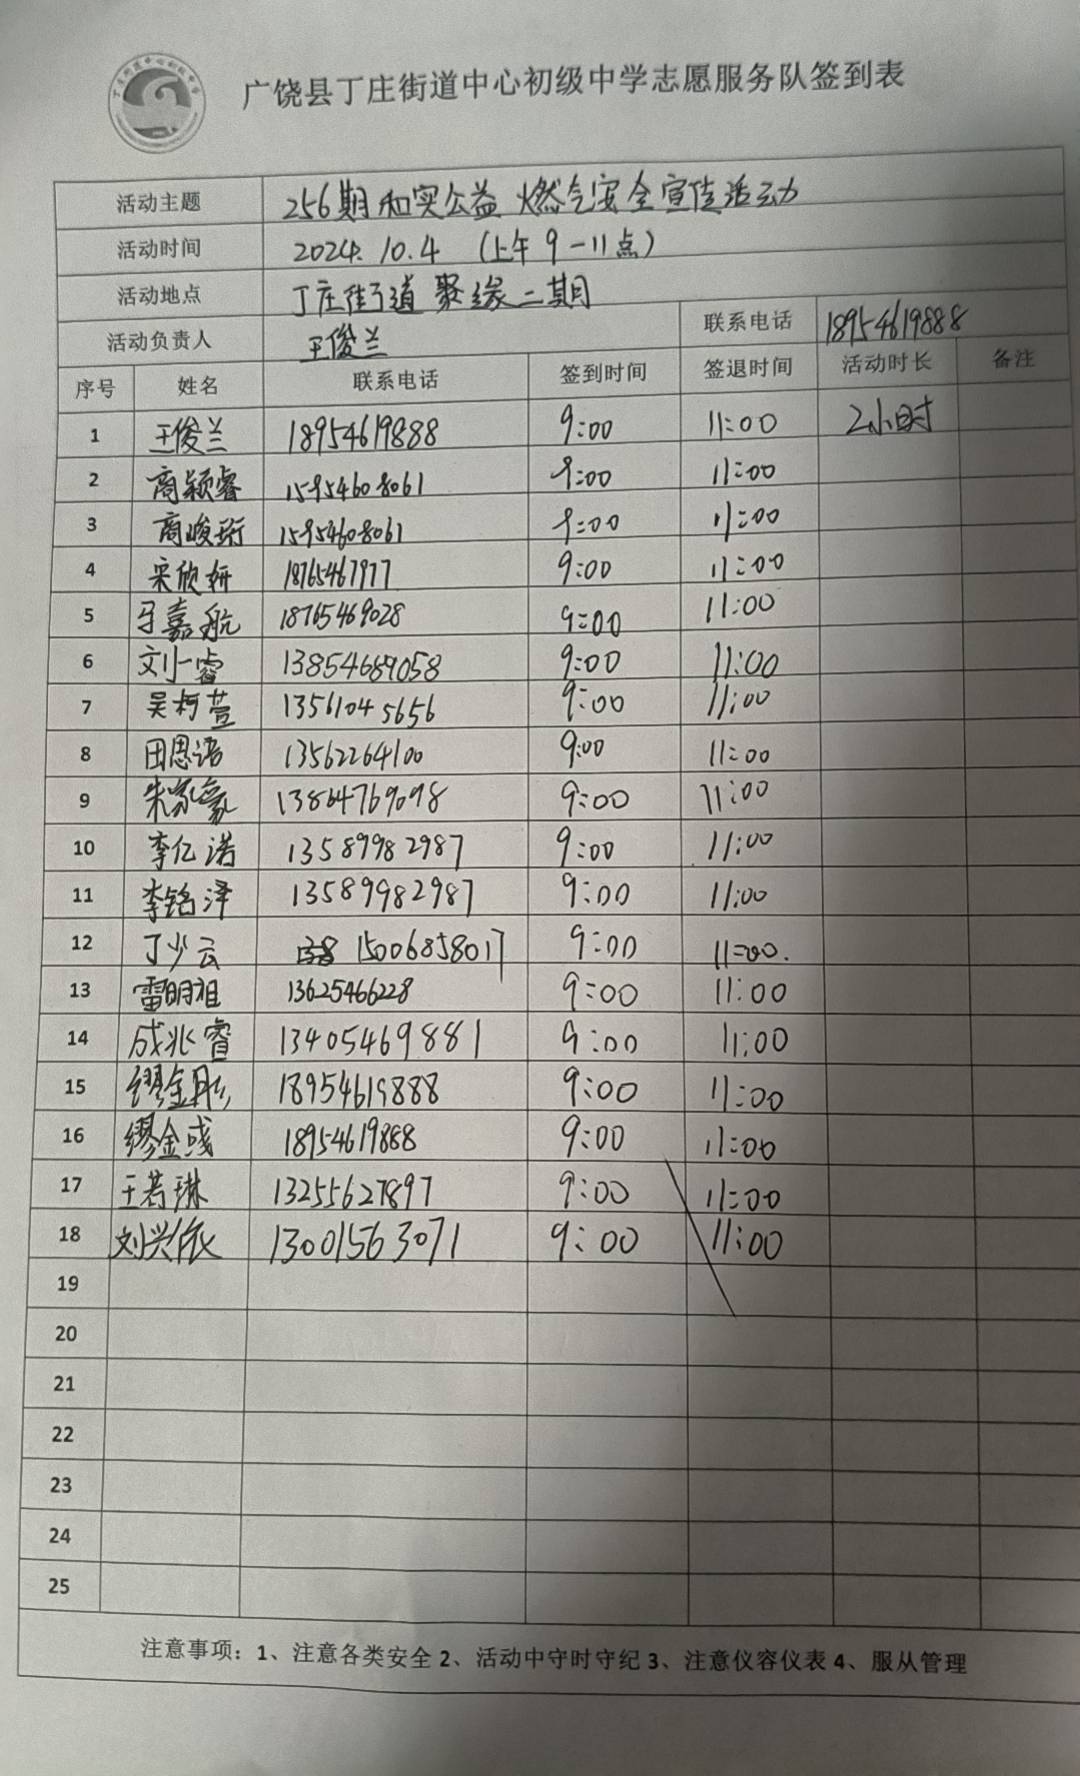 广饶县丁庄街道中心初级中学志愿服务队签到表
活动主题 256期和实公益 燃气安全宣传活动
活动时间 2024.10.4 (上午9-11点)
活动地点 丁庄街道 聚缘二期
活动负责人 王俊兰 联系电话 18954619888
序号 姓名 联系电话 签到时间 签退时间 活动时长 备注
1 王俊兰 18954619888 9:00 11:00 2小时
2 商颖睿 15954608061 9:00 11:00
3 商峻珩 15954608061 9:00 11:00
4 宋欣妍 9:00 11:00
5 马嘉航 18765469028 9:00 11:00
6 刘一睿 13854689058 9:00 11:00
7 吴柯萱 13561045656 9:00 11:00
8 田思语 13562264100 9:00 11:00
9 朱家豪 13864769098 9:00 11:00
10 李亿诺 13589982987 9:00 11:00
11 李铭泽 13589982987 9:00 11:00
12 丁少云 15006858017 9:00 11:00.
13 雷明祖 13625466228 9:00 11:00
14 成兆睿 13405469881 9:00 11:00
15 缪金彤 18954619888 9:00 11:00
16 缪金彧 18954619888 9:00 11:00
17 王若琳 13255627897 9:00 11:00
18 刘兴依 13001563071 9:00 11:00
19
20
21
22
23
24
25
注意事项：1、注意各类安全 2、活动中守时守纪 3、注意仪容仪表 4、服从管理